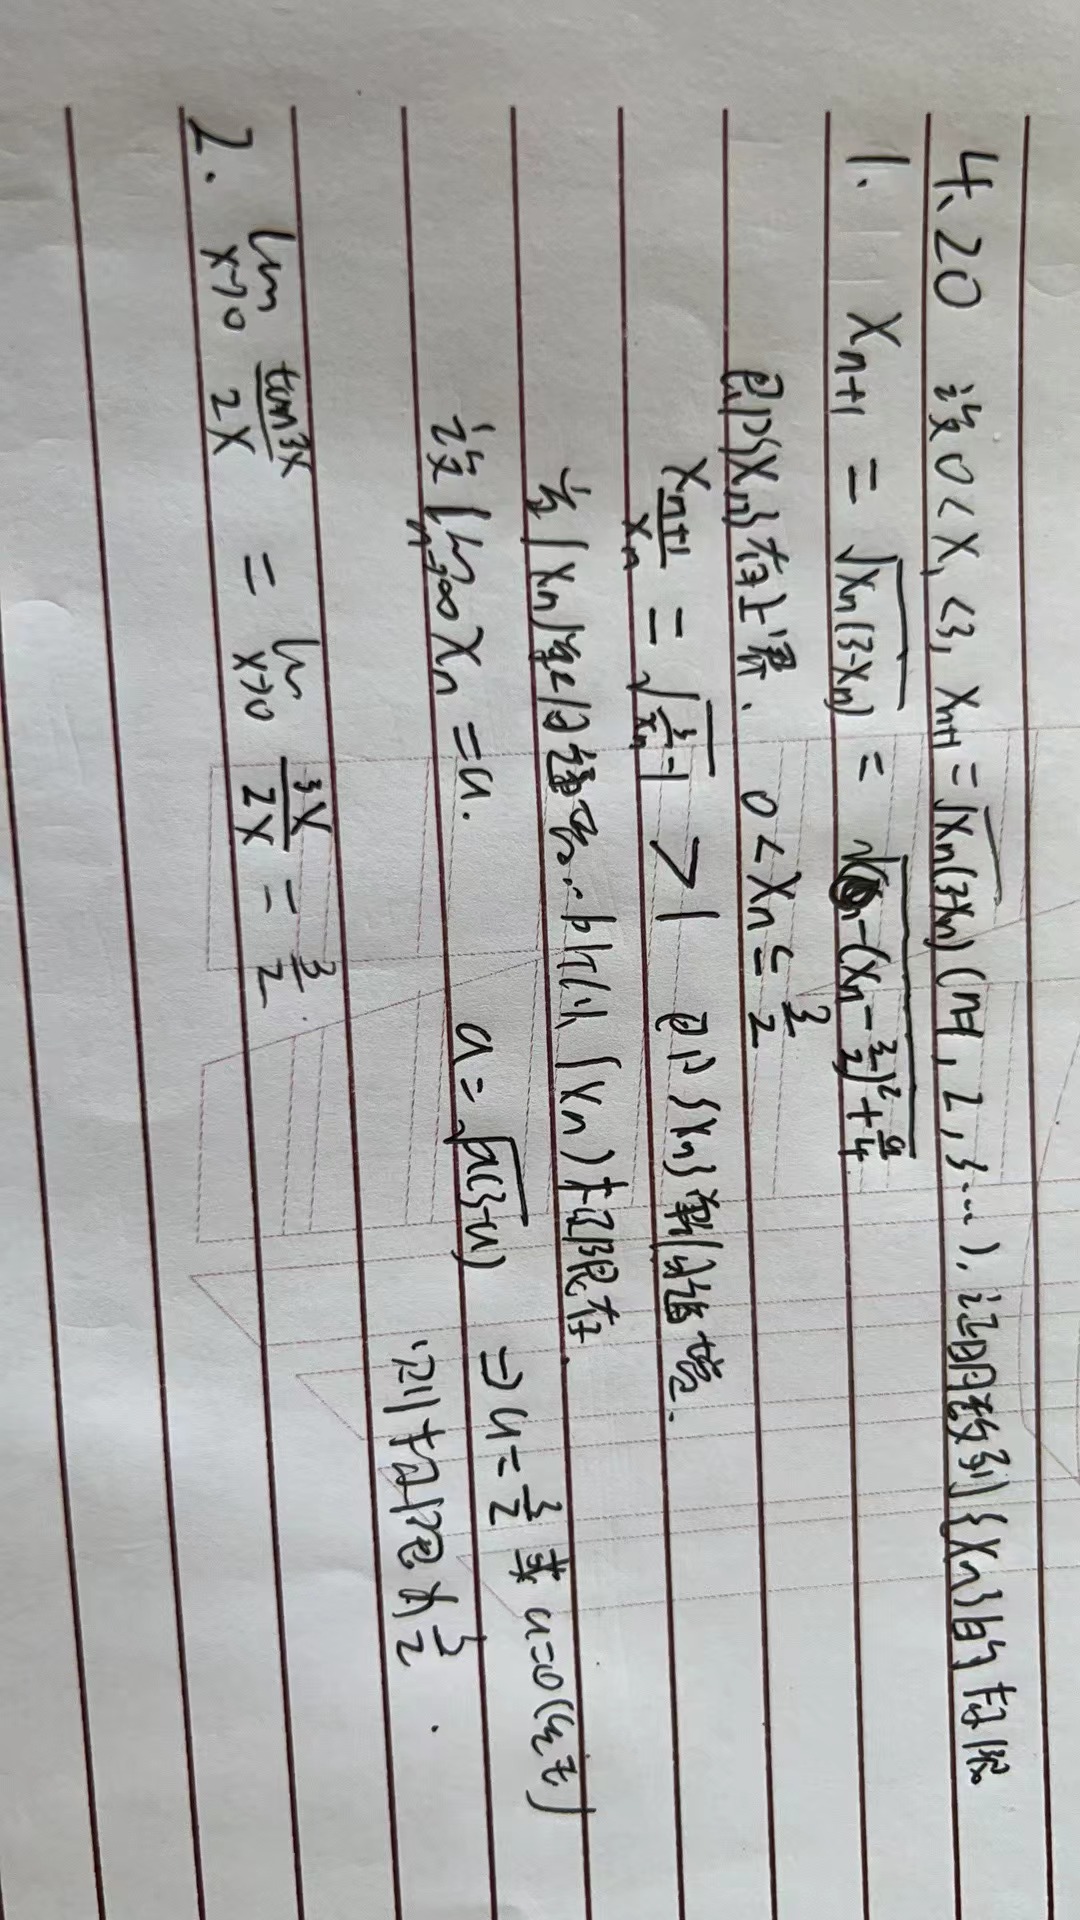 4.20 设0<x₁<3, xₙ₊₁=√xₙ(3-xₙ) (n=1, 2, 3…), 证明数列{xₙ}的极限
1. xₙ₊₁ = √xₙ(3-xₙ) = √-(xₙ-3/2)²+9/4
即{xₙ}有上界. 0<xₙ≤3/2
xₙ₊₁/xₙ = √3/xₙ-1 > 1 即{xₙ}单调递增.
极限存在.
设 lim n→∞ xₙ = a. a=√a(3-a) ⇒ a=3/2 或 a=0(舍去)
则极限为3/2.
2. lim x→0 tan3x/2x = lim x→0 3x/2x = 3/2.